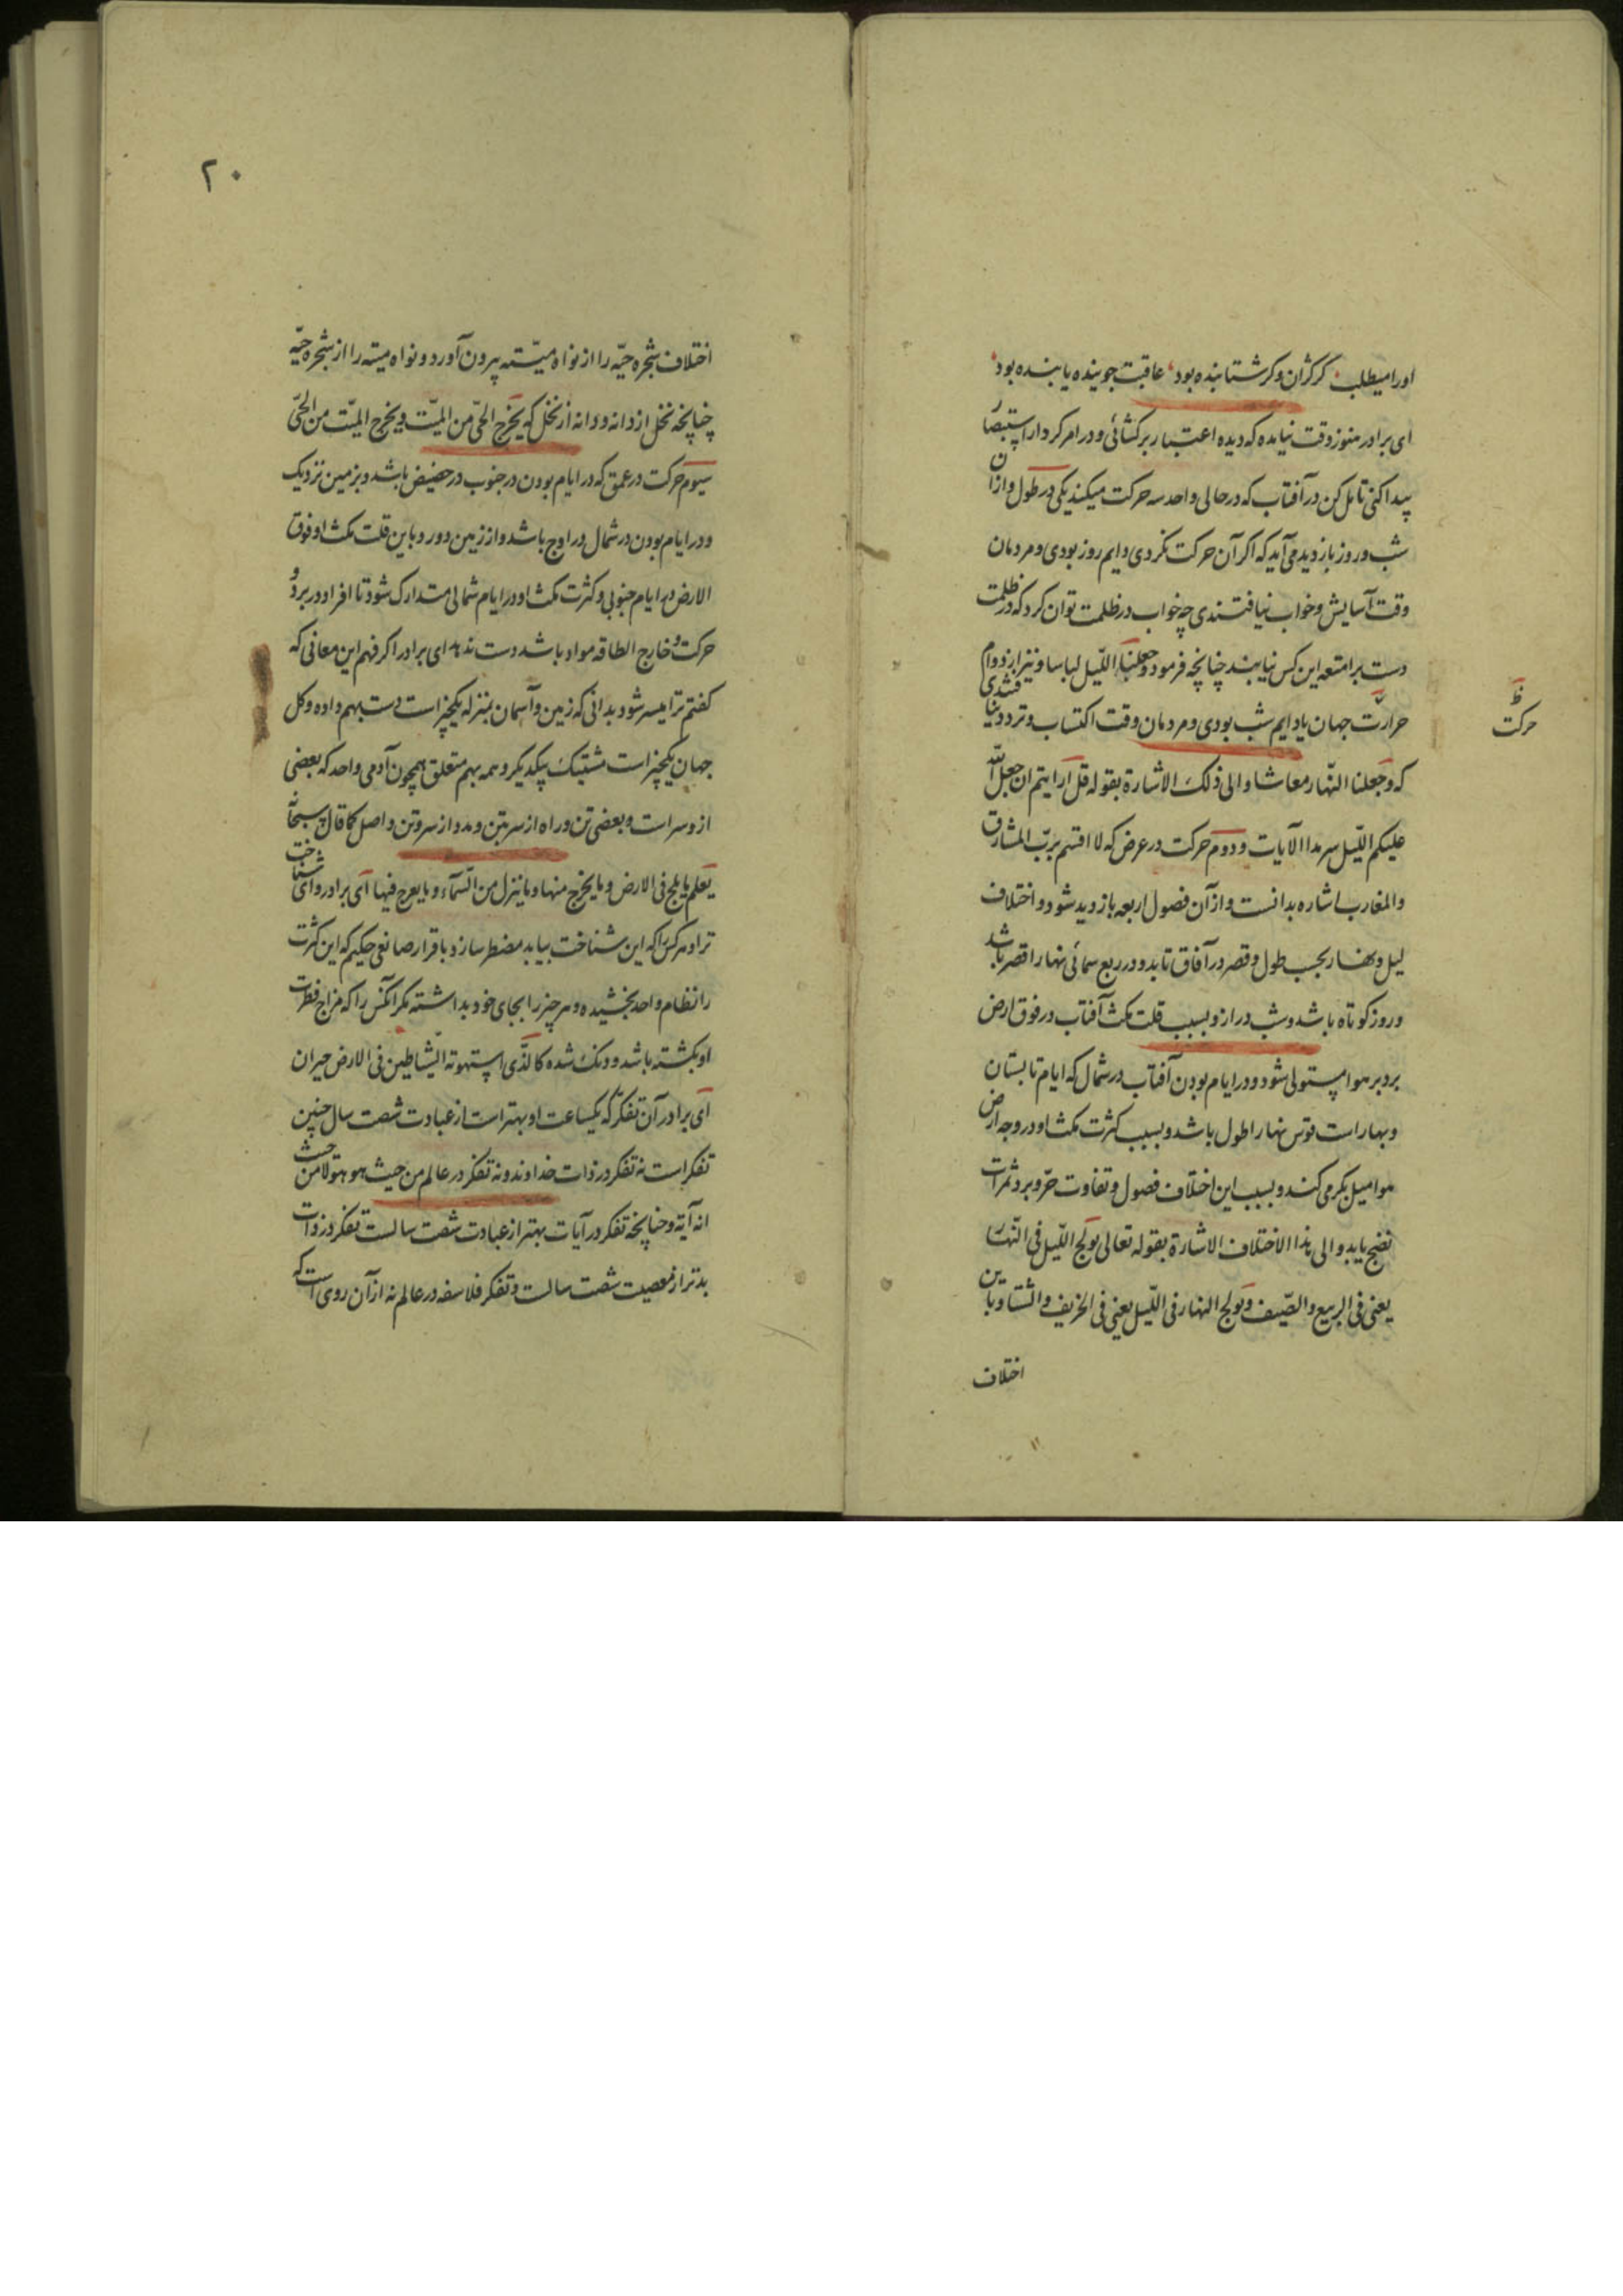 اورا میطلب گر گران و گر شتابنده بود عاقبت جوینده یابنده بود
ای برادر هنوز وقت نیامده که دیده اعتبار برکشائی و در امر کردار استبصار
پیدا کنی تامل کن در آفتاب که در حالی واحد سه حرکت میکند یکی در طول و از آن
شب و روز بازدید می آید که اگر آن حرکت نکردی دایم روز بودی و مردمان
وقت آسایش و خواب نیافتندی چه خواب در ظلمت توان کرد که در ظلمت
دست بر امتعه این کس نیابند چنانچه فرمود وجعلنا اللّیل لباسا و نیز از دوام
حرارت جهان یا دایم شب بودی و مردمان وقت اکتساب و تردد نیافتندی
حرکت
که وجعلنا النّهار معاشا والی ذلک الاشارة بقوله قل ارایتم ان جعل اللّه
علیکم اللّیل سرمدا الآیات و دوم حرکت در عرض که لا اقسم بربّ المشارق
والمغارب اشاره بدانست و از آن فصول اربعه بازدید شود و اختلاف
لیل و نهار بحسب طول و قصر در آفاق تابد و در ربع سمائی نهار اقصر باشد
و روز کوتاه باشد و شب دراز و بسبب قلت مکث آفتاب در فوق ارض
برد بر هوا مستولی شود و در ایام بودن آفتاب در شمال که ایام تابستان
و بهار است قوس نهار اطول باشد و بسبب کثرت مکث او در وجه ارض
هوا میل بگرمی کند و بسبب این اختلاف فصول و تفاوت حرّ و برد ثمرات
نضج یابد والی هذا الاختلاف الاشارة بقوله تعالی یولج اللّیل فی النّهار
یعنی فی الربیع والصّیف ویولج النهار فی اللّیل یعنی فی الخریف والشتا و باین
اختلاف
۲۰
اختلاف شجره حیّه را از نواه میّته بیرون آورد و نواه میته را از شجره حیّه
چنانچه نخل از دانه و دانه از نخل که یخرج الحیّ من المیّت ویخرج المیّت من الحیّ
سیوم حرکت در عمق که در ایام بودن در جنوب در حضیض باشد و بزمین نزدیک
و در ایام بودن در شمال در اوج باشد و از زمین دور و باین قلت مکث او فوق
الارض در ایام جنوبی و کثرت مکث او در ایام شمالی متدارک شود تا افراد در برد و
حرکت و خارج الطاقه مواد باشد دست ندهد ای برادر اگر فهم این معانی که
گفتم ترا میسر شود بدانی که زمین و آسمان بمنزله یکچیز است دست بهم داده و کل
جهان یکچیز است مشتبک بیکدیگر و همه بهم متعلق همچون آدمی واحد که بعضی
از و سر است و بعضی تن و راه از سر بتن و مدد از سر و تن واصل کما قال سبحانه
یعلم ما یلج فی الارض وما یخرج منها وما ینزل من السّمآء وما یعرج فیها ای برادر وای شناخت
ترا و هر کس را که این شناخت بیاید مضطر سازد باقرار صانعی حکیم که این کثرت
را نظام واحد بخشیده و هر چیز را بجای خود بداشته مگر آنکس را که مزاج فطرت
او بگشته باشد و دنگ شده کالّذی استهوته الشیاطین فی الارض حیران
ای برادر آن تفکر که یکساعت او بهتر است از عبادت شصت سال چنین
تفکر است نه تفکر در ذات خداوند و نه تفکر در عالم من حیث هو هو لا من حیث
انه آیة و چنانچه تفکر در آیات بهتر از عبادت شصت سالست تفکر در ذات
بدتر از معصیت شصت سالست و تفکر فلاسفه در عالم نه از آن روی است که